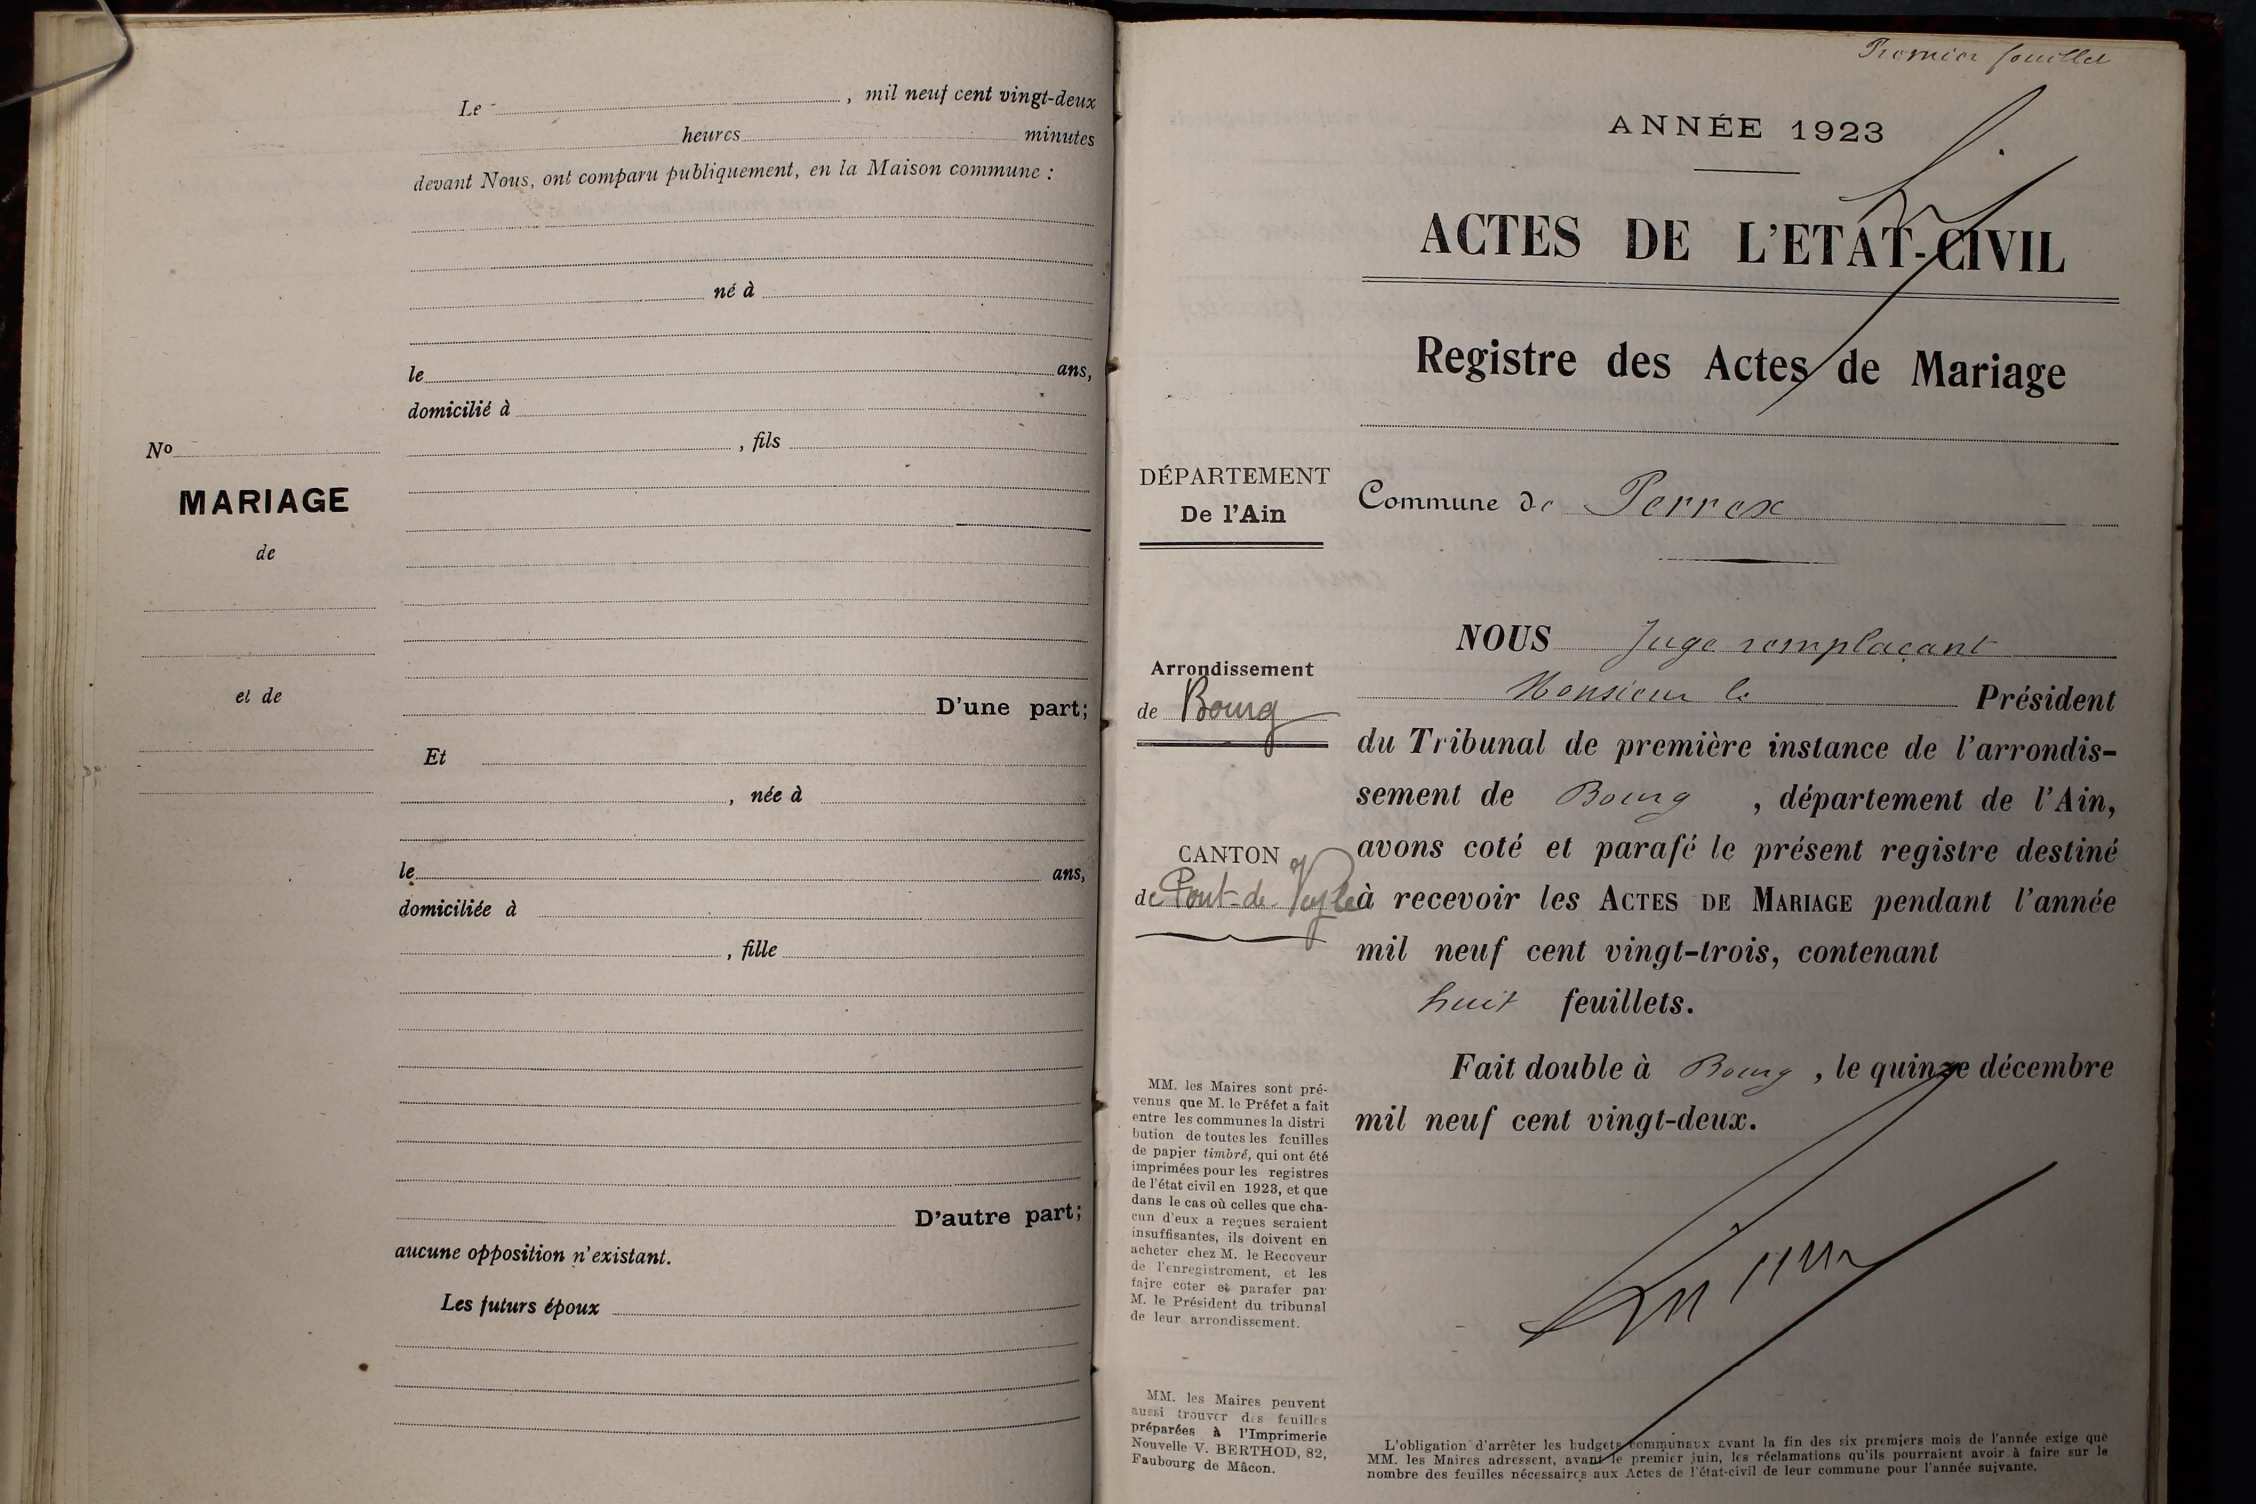 Le , mil neuf cent vingt-deux
heures minutes
devant Nous, ont comparu publiquement, en la Maison commune :
né à
le ans,
domicilié à
, fils
No
MARIAGE
de
et de
D'une part;
Et
, née à
le ans,
domiciliée à
, fille
D'autre part;
aucune opposition n'existant.
Les futurs époux
Premier feuillet
ANNÉE 1923
ACTES DE L'ETAT-CIVIL
Registre des Actes de Mariage
DÉPARTEMENT
De l'Ain
Commune de Perrex
Arrondissement
de Bourg
CANTON
de Pont-de-Veyle
NOUS Juge remplaçant
Monsieur le Président
du Tribunal de première instance de l'arrondis-
sement de Bourg , département de l'Ain,
avons coté et parafé le présent registre destiné
à recevoir les ACTES DE MARIAGE pendant l'année
mil neuf cent vingt-trois, contenant
huit feuillets.
Fait double à Bourg , le quinze décembre
mil neuf cent vingt-deux.
MM. les Maires sont pré-
venus que M. le Préfet a fait
entre les communes la distri
bution de toutes les feuilles
de papier timbré, qui ont été
imprimées pour les registres
de l'état civil en 1923, et que
dans le cas où celles que cha-
cun d'eux a reçues seraient
insuffisantes, ils doivent en
acheter chez M. le Receveur
de l'enregistrement, et les
faire coter et parafer par
M. le Président du tribunal
de leur arrondissement.
MM. les Maires peuvent
aussi trouver des feuilles
préparées à l'Imprimerie
Nouvelle V. BERTHOD, 82,
Faubourg de Mâcon.
L'obligation d'arrêter les budgets communaux avant la fin des six premiers mois de l'année exige que
MM. les Maires adressent, avant le premier juin, les réclamations qu'ils pourraient avoir à faire sur le
nombre des feuilles nécessaires aux Actes de l'état-civil de leur commune pour l'année suivante.